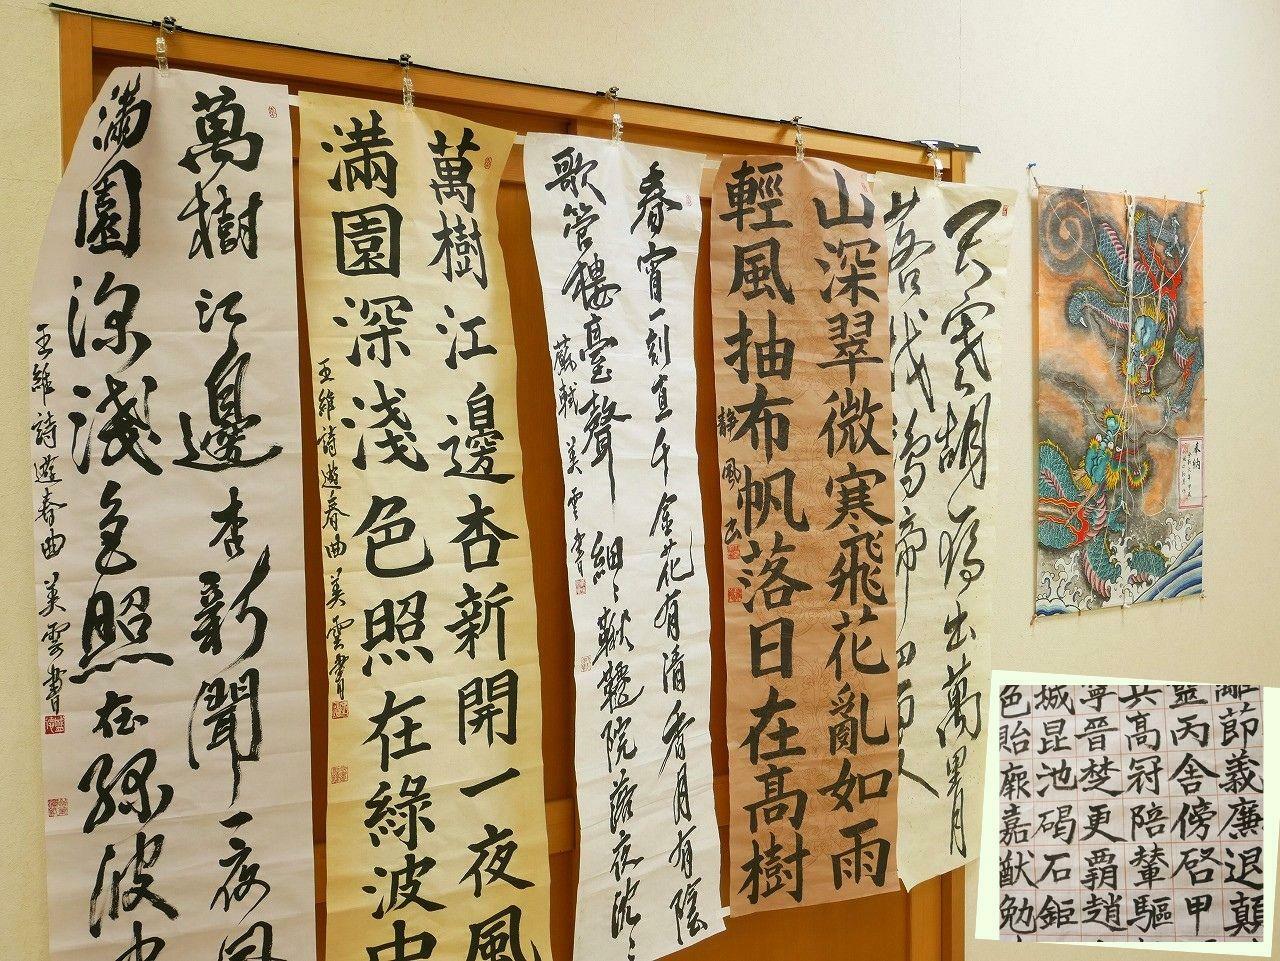 奉納
天寒胡雁出萬里月
山深翠微寒飛花亂如雨
輕風抽布帆落日在高樹
静風書
春宵一刻直千金花有清香月有陰
歌管樓臺聲細々鞦韆院落夜沈々
蘇軾 美雲書
萬樹江邊杏新開一夜風
滿園深淺色照在綠波中
王維詩遊春曲 美雲書
萬樹江邊杏新開一夜風
滿園深淺色照在綠波中
王維詩遊春曲 美雲書
離節義廉退顛
丙舍傍啓甲
兵高冠陪輦驅
寧晉楚更霸趙
城昆池碣石鉅
色貽厥嘉猷勉